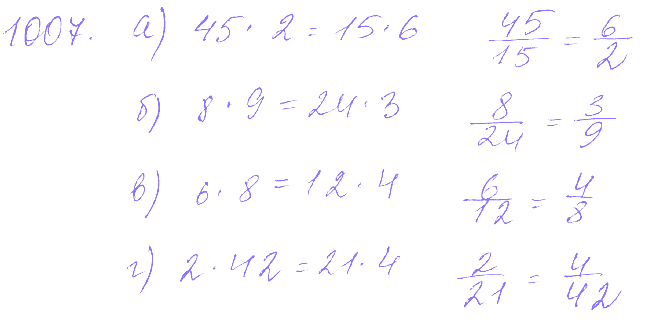 1007. а) 45 · 2 = 15 · 6 45/15 = 6/2
б) 8 · 9 = 24 · 3 8/24 = 3/9
в) 6 · 8 = 12 · 4 6/12 = 4/8
г) 2 · 42 = 21 · 4 2/21 = 4/42